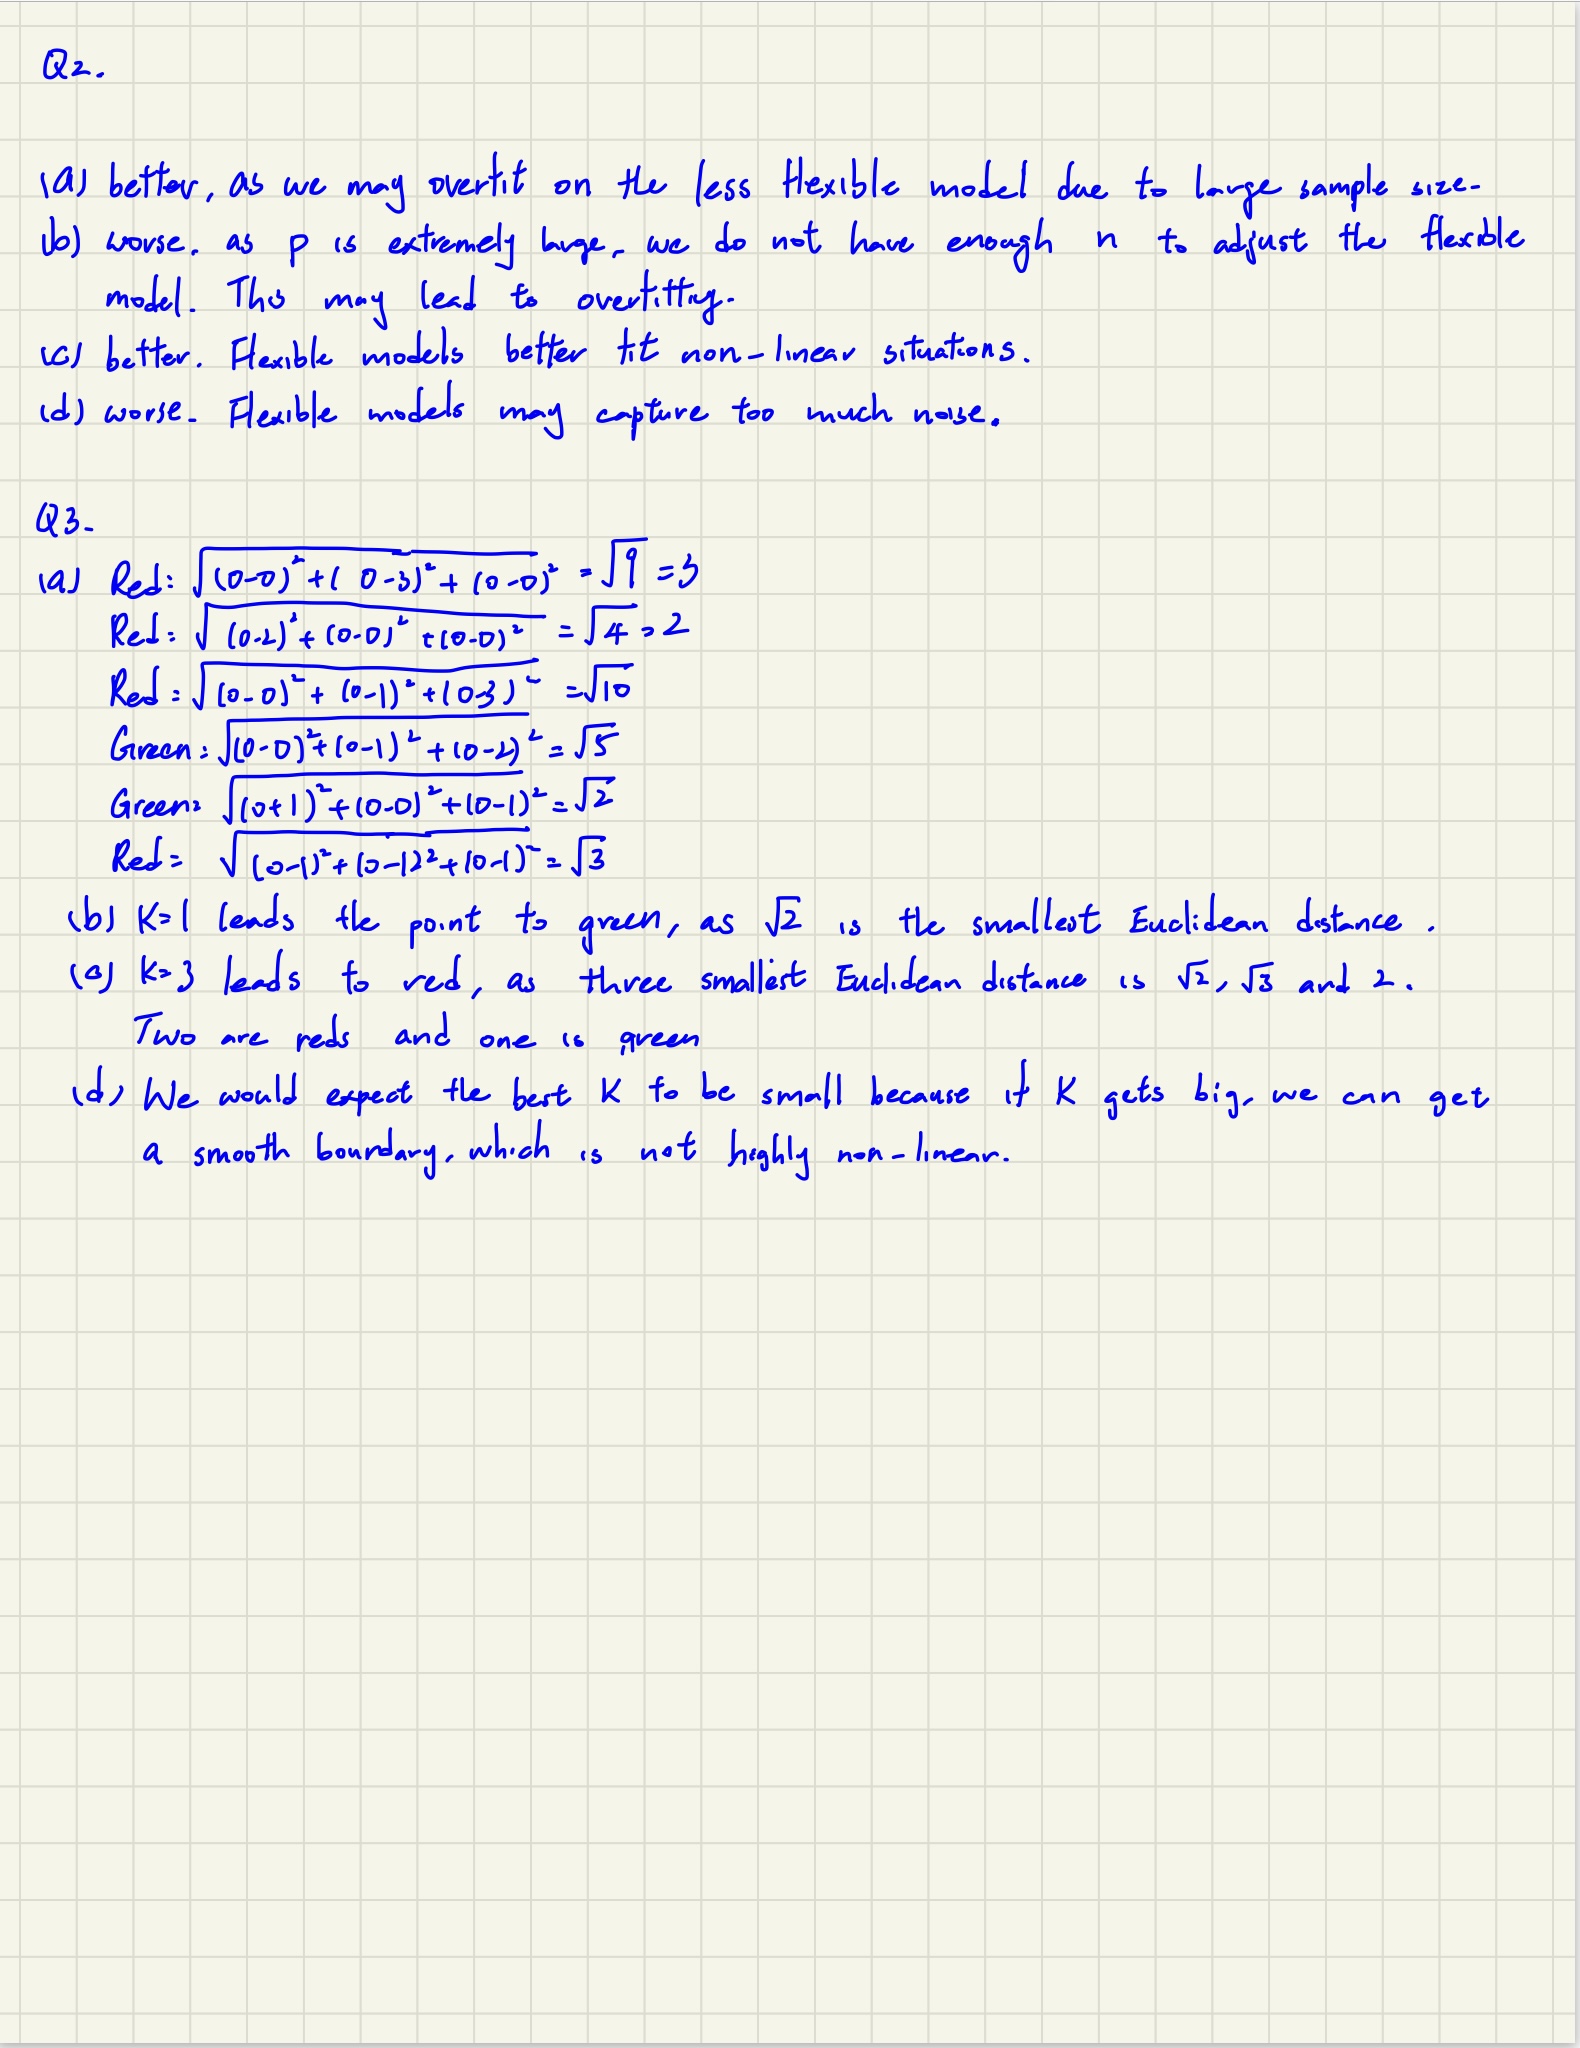 Q2.
(a) better, as we may overfit on the less flexible model due to large sample size.
(b) worse. as p is extremely large, we do not have enough n to adjust the flexible
model. This may lead to overfitting.
(c) better. Flexible models better fit non-linear situations.
(d) worse. Flexible models may capture too much noise.
Q3.
(a) Red: √((0-0)²+(0-3)²+(0-0)²) = √9 = 3
Red: √((0-2)²+(0-0)²+(0-0)²) = √4 = 2
Red: √((0-0)²+(0-1)²+(0-3)²) = √10
Green: √((0-0)²+(0-1)²+(0-2)²) = √5
Green: √((0+1)²+(0-0)²+(0-1)²) = √2
Red: √((0-1)²+(0-1)²+(0-1)²) = √3
(b) K=1 leads the point to green, as √2 is the smallest Euclidean distance.
(c) K=3 leads to red, as three smallest Euclidean distance is √2, √3 and 2.
Two are reds and one is green
(d) We would expect the best K to be small because if K gets big, we can get
a smooth boundary, which is not highly non-linear.